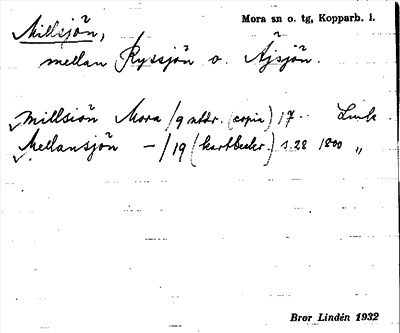 Mora sn o. tg, Kopparb. l.
Millsjön,
mellan Ryssjön o. Äjsjön.
Millsiön Mora /9 attdr. (copia) 17-- Lmk
Mellansjön -/19 (kartbeskr.) s. 28 1800 „
Bror Lindén 1932